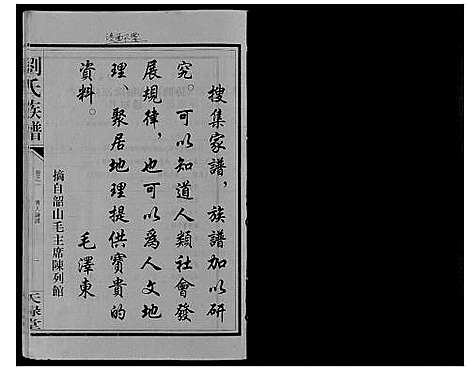 搜集家譜，族譜加以研
究。可以知道人類社會發
展規律，也可以爲人文地
理、聚居地理提供寶貴的
資料。
毛澤東
摘自韶山毛主席陳列館
劉氏族譜
卷之一